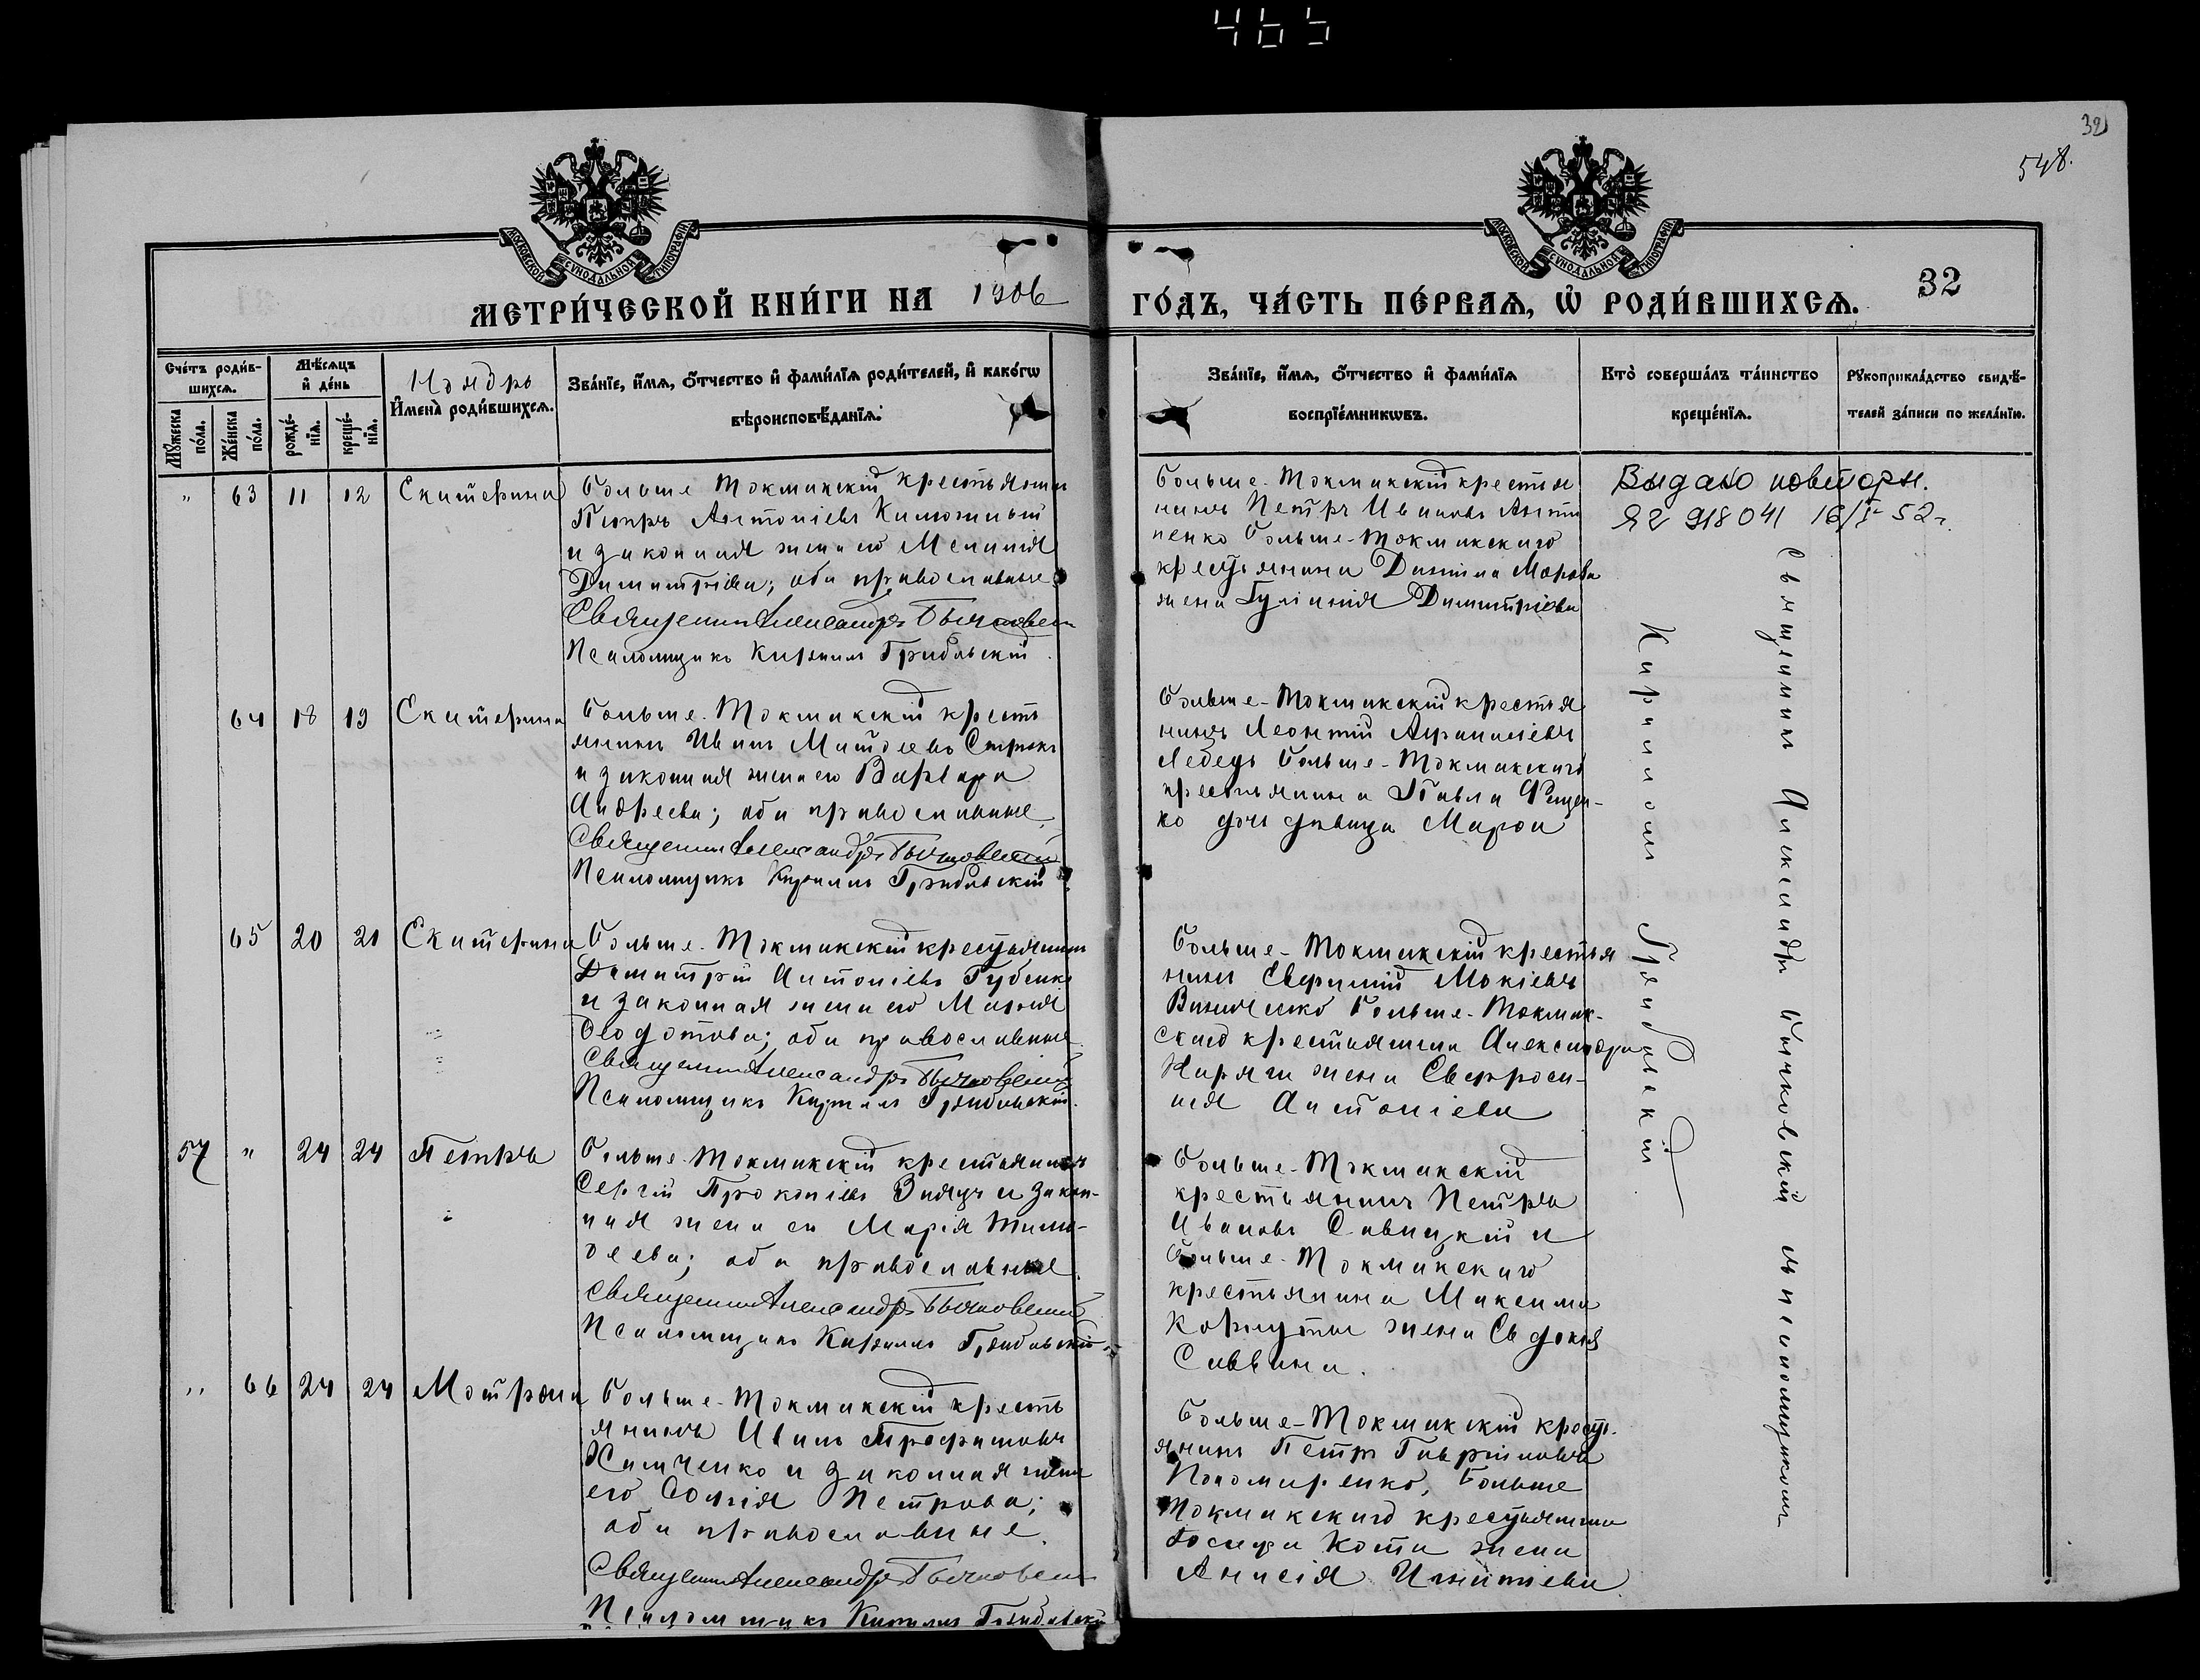 465
32
548.
МОСКОВСКОЙ СѴНОДАЛЬНОЙ ТИПОГРАФІИ
МОСКОВСКОЙ СѴНОДАЛЬНОЙ ТИПОГРАФІИ
МЕТРИ́ЧЕСКОЙ КНИ́ГИ НА 1906
ГО́ДЪ, ЧА́СТЬ ПЕ́РВАѦ, Ѡ҆ РОДИ́ВШИХСѦ.
32
Сче́тъ роди́в-
шихсѧ.
Мꙋ́жеска по́ла.
Же́нска по́ла.
Мѣ́сѧцъ
и҆ де́нь
рожде́-
нїѧ.
креще́-
нїѧ.
Ноядрь
И҆мена̀ роди́вшихсѧ.
Зва́нїе, и҆́мѧ, ѻ҆́тчество и҆ фами́лїѧ роди́телей, и҆ како́гѡ
вѣроисповѣ́данїѧ.
Зва́нїе, и҆́мѧ, ѻ҆́тчество и҆ фами́лїѧ
воспрїе́мникѡвъ.
Кто̀ соверша́лъ та́инство
креще́нїѧ.
Рꙋкоприкла́дство свидѣ́-
телей за́писи по жела́нїю.
" 63 11 12 Екатерина
Больше Токмакскій крестьянин
Петръ Антоніевъ
и законная жена его Меланія
Димитріева; оба православные.
Священник Александръ Бычковский
Псаломщикъ Кириллъ Грибовскій
Больше-Токмакскій крестья
нинъ Петръ Ивановъ Анти
пенко Больше-Токмакскаго
крестьянина Данiила Мороза
жена Гуліанія Димитріева
Выдано повторн.
ЯР 918041 16/I-52г.
64 18 19 Екатерина
Больше-Токмакскій кресть
янинъ Иванъ Матѳеевъ
и законная жена его Варвара
Андреева; оба православные.
Священник Александръ Бычковский
Псаломщикъ Кириллъ Грибовскій
Больше-Токмакскій крестья
нинъ Леонтій Аѳанасіевъ
Лебедь Больше-Токмакскаго
крестьянина Павла Фещен-
ко дочь дѣвица Марѳа
65 20 21 Екатерина
Больше-Токмакскій крестьянин
Димитрій Антоніевъ Губенко
и законная жена его Марія
Ѳеодотова; оба православные.
Священник Александръ Бычковский
Псаломщикъ Кириллъ Грибовскій.
Больше-Токмакскій крестья
нинъ Мокіевъ
Больше-Токмак-
скаго крестьянина Александра
жена Евфроси-
нія Антоніева
57 " 24 24 Петръ
Больше-Токмакскій крестьянинъ
Сергій Прокопіевъ Заяцъ и закон-
ная жена его Марія Тимо-
ѳеева; оба православные.
Священник Александръ Бычковский
Псаломщикъ Кириллъ Грибовскій
Больше-Токмакскій
крестьянинъ Петръ
Ивановъ Савицкій и
Больше-Токмакскаго
крестьянина Максима
жена Евдокія
Саввина.
" 66 24 24 Мотрона
Больше-Токмакскій кресть
янинъ Иванъ Трофимовъ
Химченко и законная жена
его Софія Петрова;
оба православные.
Священник Александръ Бычковский
Псаломщикъ Кириллъ Грибовскій
Больше-Токмакскій кресть-
янинъ Петръ Гавріиловъ
Пономаренко, Больше
Токмакскаго крестьянина
Іосифа Кота жена
Анисія Игнатіева
Священникъ Александръ Бычковскій съ псаломщикомъ
Кирилломъ Грибовскій